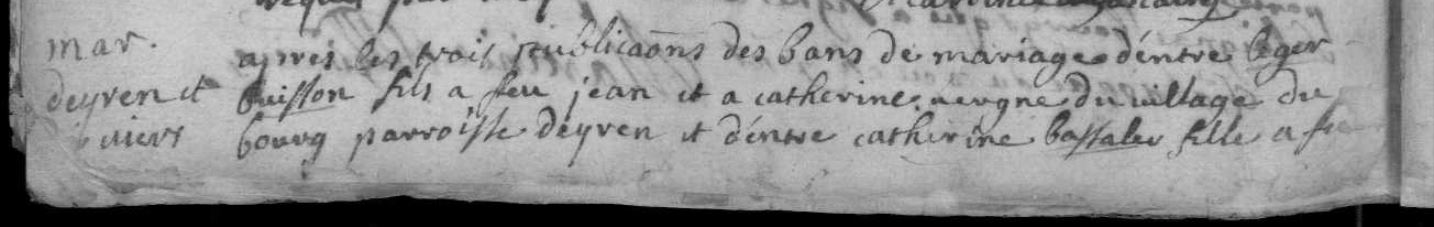 mar.
deyren et
apres les trois publicaõns des bans de mariage d'entre leger
buisson fils a feu jean et a catherine vergne du village du
bourg parroisse deyren et d'entre catherine bassaler fille a feu